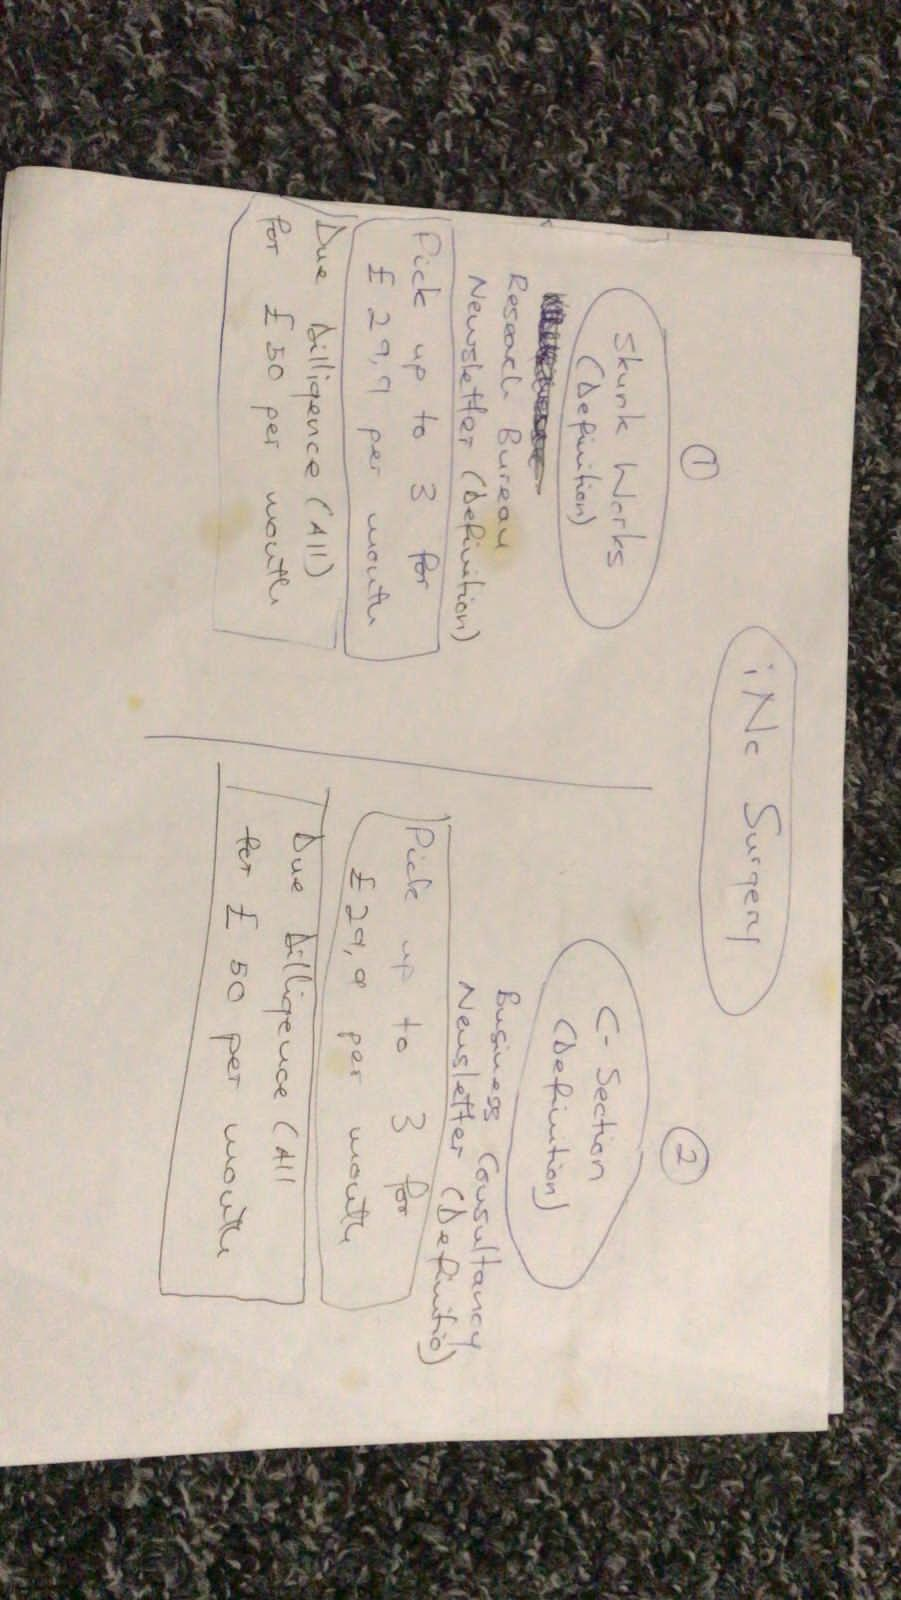 iNc Surgery
1
Skunk Works
(Definition)
Research Bureau
Newsletter (Definition)
Pick up to 3 for
£29,9 per month
Due Dilligence (All)
for £50 per month
2
C-Section
(Definition)
Business Consultancy
Newsletter (Definitio)
Pick up to 3 for
£29,9 per month
Due Dilligence (All
for £50 per month